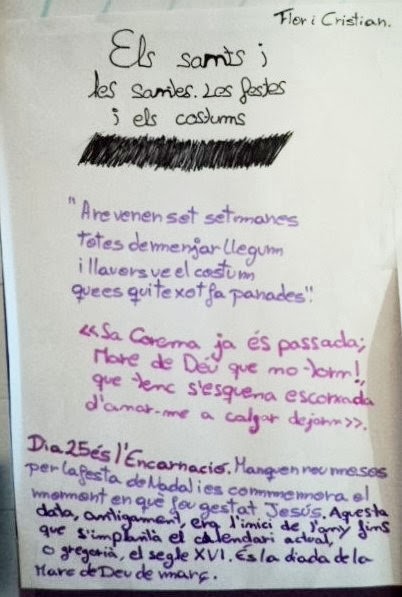 Flor i Cristian.
Els sants i
les santes. Les festes
i els costums
"Are venen set setmanes
totes de menjar llegum
i llavors ve el costum
que es qui te xot fa panades".
<<Sa Corema ja és passada;
Mare de Déu que mo torn!,
que tenc s'esquena escorxada
d'anar-me a calgar dejorn>>.
Dia 25 és l'Encarnació. Manquen nou mesos
per la festa de Nadal i es commemora el
moment en què fou gestat Jesús. Aquesta
data, antigament, era l'inici de l'any fins
que s'implantà el calendari actual,
o gregorià, el segle XVI. És la diada de la
Mare de Deu de març.